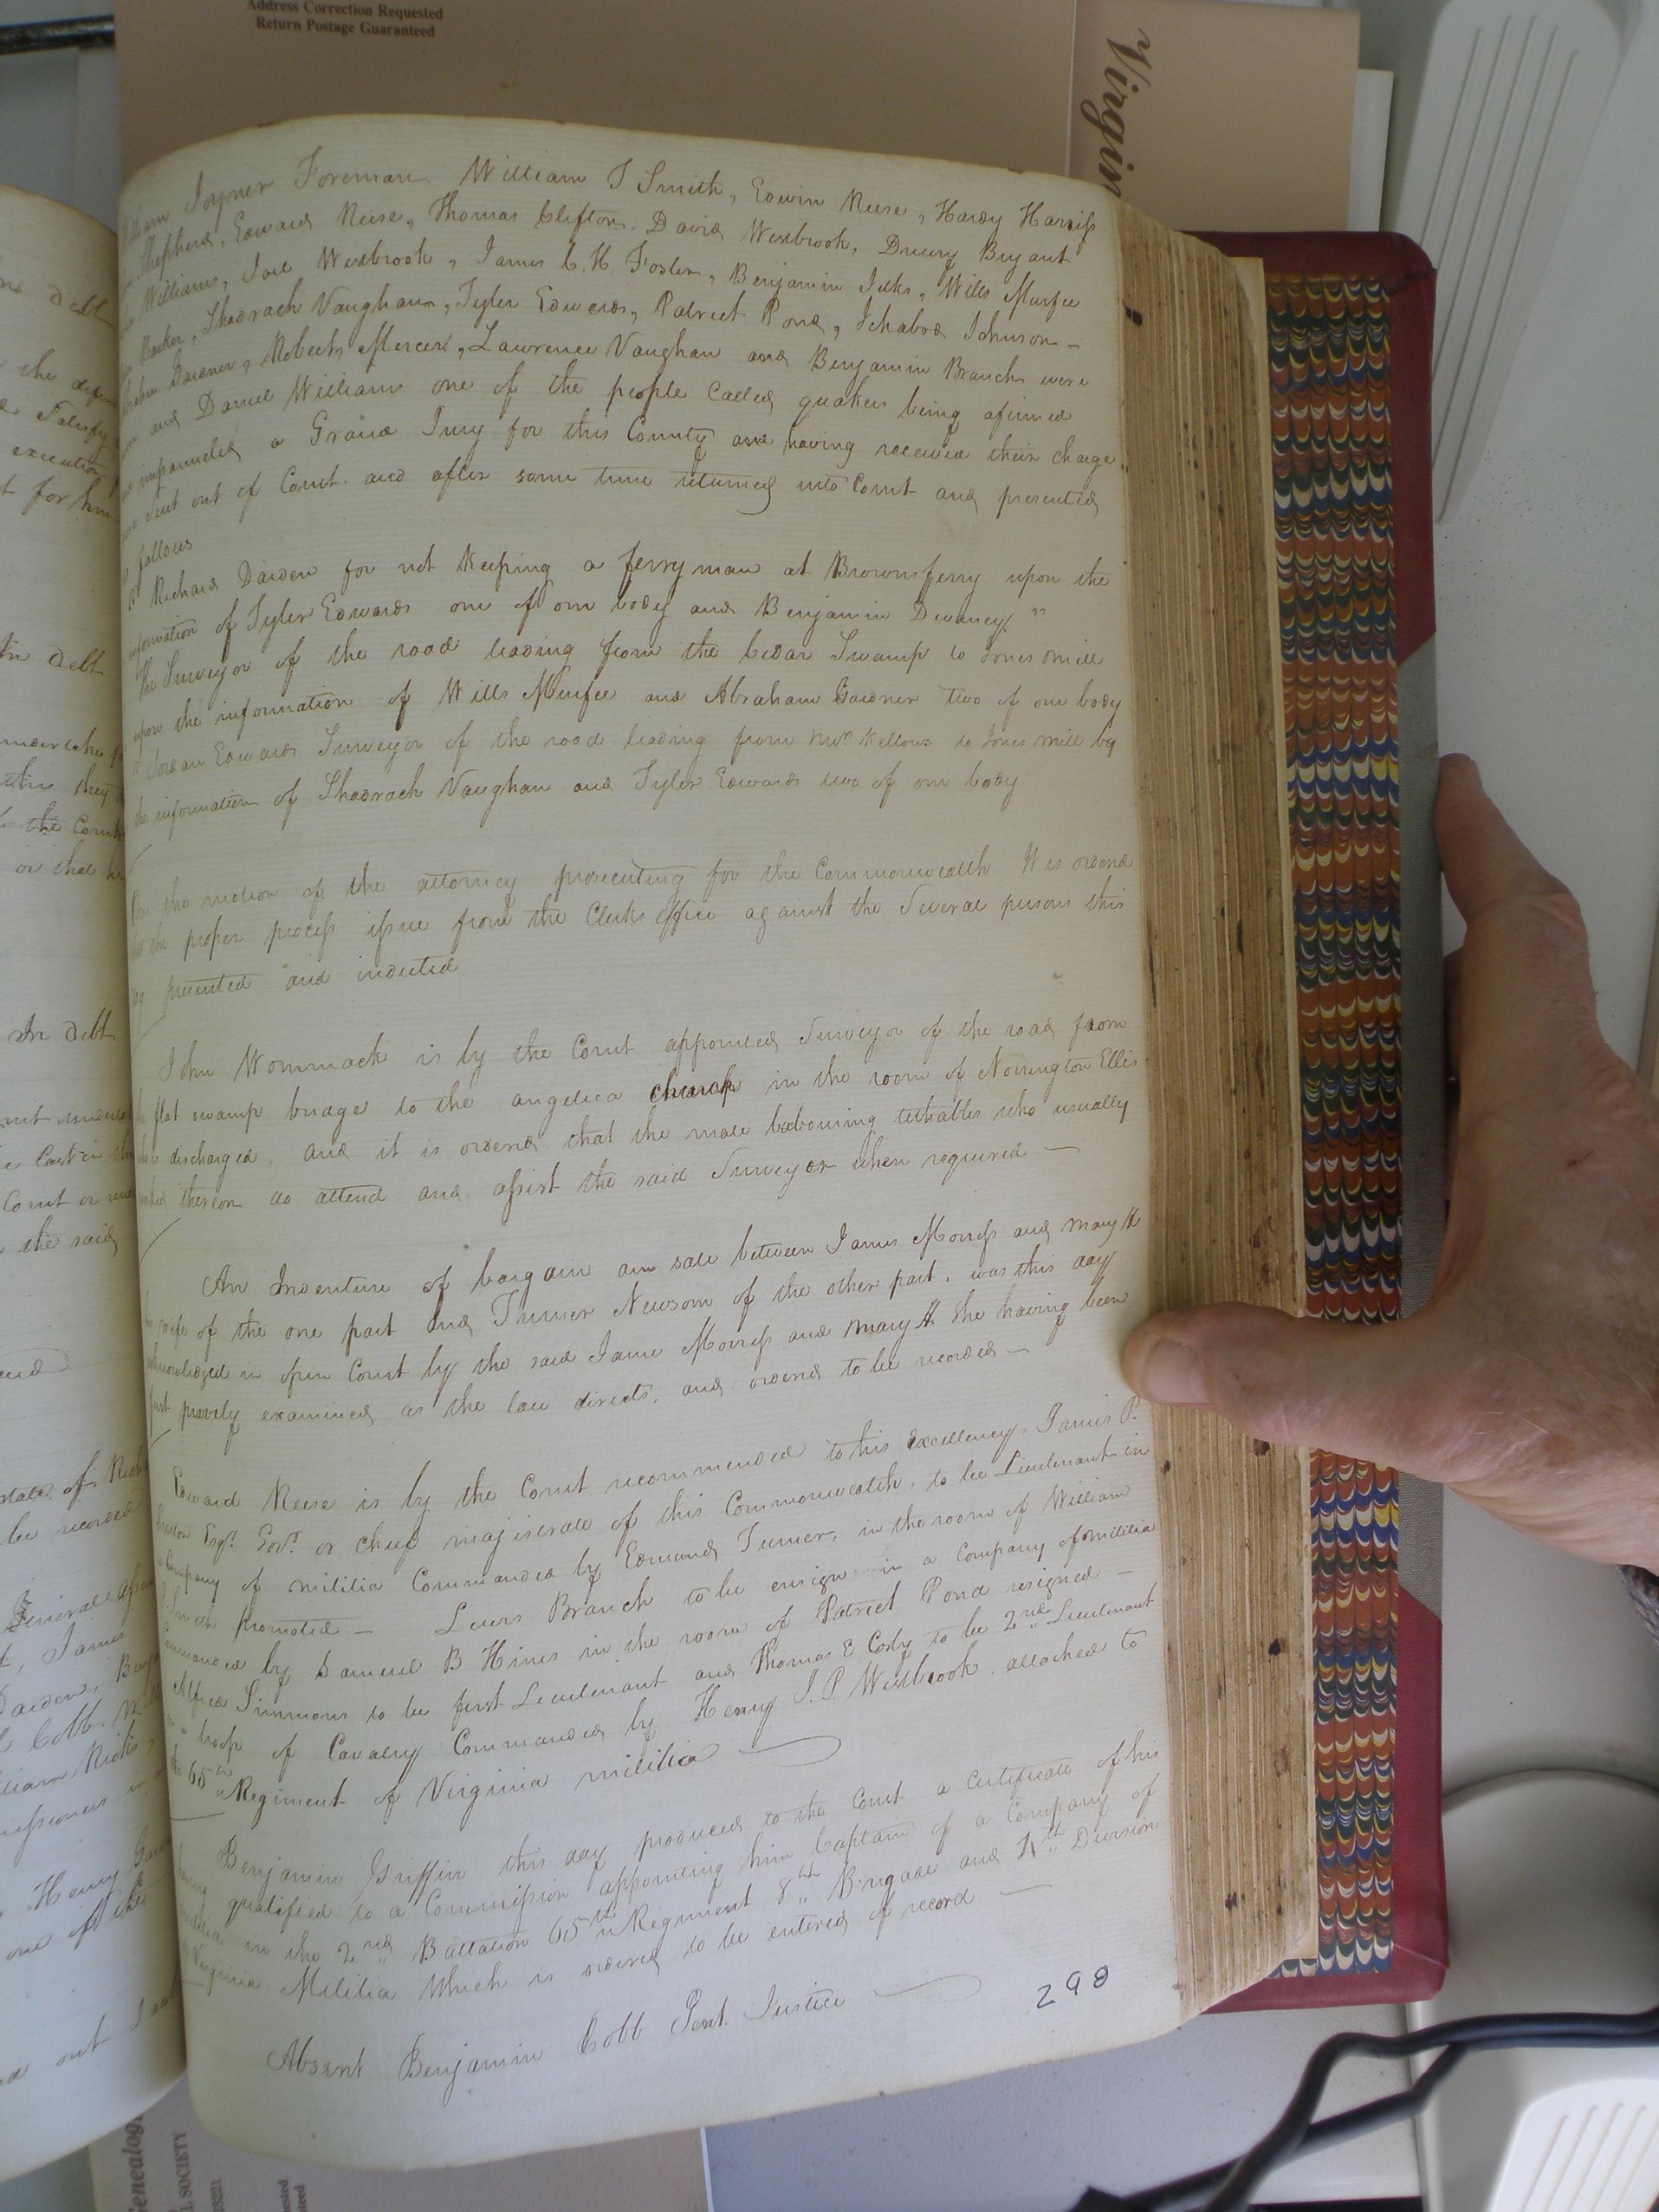 Address Correction Requested
Return Postage Guaranteed
Virgin
William Joyner Foreman William T Smith, Edwin Reese, Hardy Harriss
Shepherd, Edward Reese, Thomas Clifton, David Westbrook, Drury Bryant
Williams, Joel Westbrook, James C. H. Foster, Benjamin Jelks, Wills Murfee
Barker, Shadrach Vaughan, Tyler Edwards, Patrick Pond, Ichabod Johnson -
Gardner, Robert Mercer, Lawrence Vaughan and Benjamin Branch were
and Daniel Williams one of the people called quakers being afirmed
impannelled a Grand Jury for this County and having received their charge
sent out of Court and after some time returned into Court and presented
follows
Richard Darden for not keeping a ferryman at Brownsferry upon the
information of Tyler Edwards one of our body and Benjamin Devaney "
the Surveyor of the road leading from the Cedar Swamp to Jones mill
upon the information of Wills Murfee and Abraham Gardner two of our body
Jordan Edwards Surveyor of the road leading from Mrs Kellows to Jones mill by
the information of Shadrach Vaughan and Tyler Edwards two of our body
On the motion of the attorney prosecuting for the Commonwealth It is orderd
that the proper process issue from the Clerks office against the Several persons this
day presented and indicted
John Wommack is by the Court appointed Surveyor of the road from
the flat swamp bridge to the angelica church in the room of Norrington Ellis
discharged. and it is orderd that the male labouring tithables who usually
worked thereon do attend and assist the said Surveyor when required -
An Indenture of bargain and sale between James Morriss and Mary H
his wife of the one part and Turner Newsom of the other part, was this day
acknowledged in open Court by the said James Morriss and Mary H. She having been
first privily examined as the law directs, and orderd to be recorded -
Edward Reese is by the Court recommended to his Excellency James P.
Preston Esqr. Govr. or chief majistrate of this Commonwealth, to be Lieutenant in
a Company of militia Commanded by Edmund Turner, in the room of William
T Smith promoted - Lewis Branch to be ensign in a Company of militia
Commanded by Samuel B Hines in the room of Patrick Pond resigned -
Alfred Simmons to be first Lieutenant and Thomas E Cosby to be 2nd Lieutenant
in a troop of Cavalry Commanded by Henry J. P. Westbrook attached to
the 65th Regiment of Virginia militia
Benjamin Griffin this day produced to the Court a Certificate of his
having qualified to a Commission appointing him Captain of a Company of
militia in the 2nd Battalion 65th Regiment 8th Brigade and 4th Division
of Virginia Militia which is orderd to be entered of record -
Absent Benjamin Cobb Gent. Justice
298